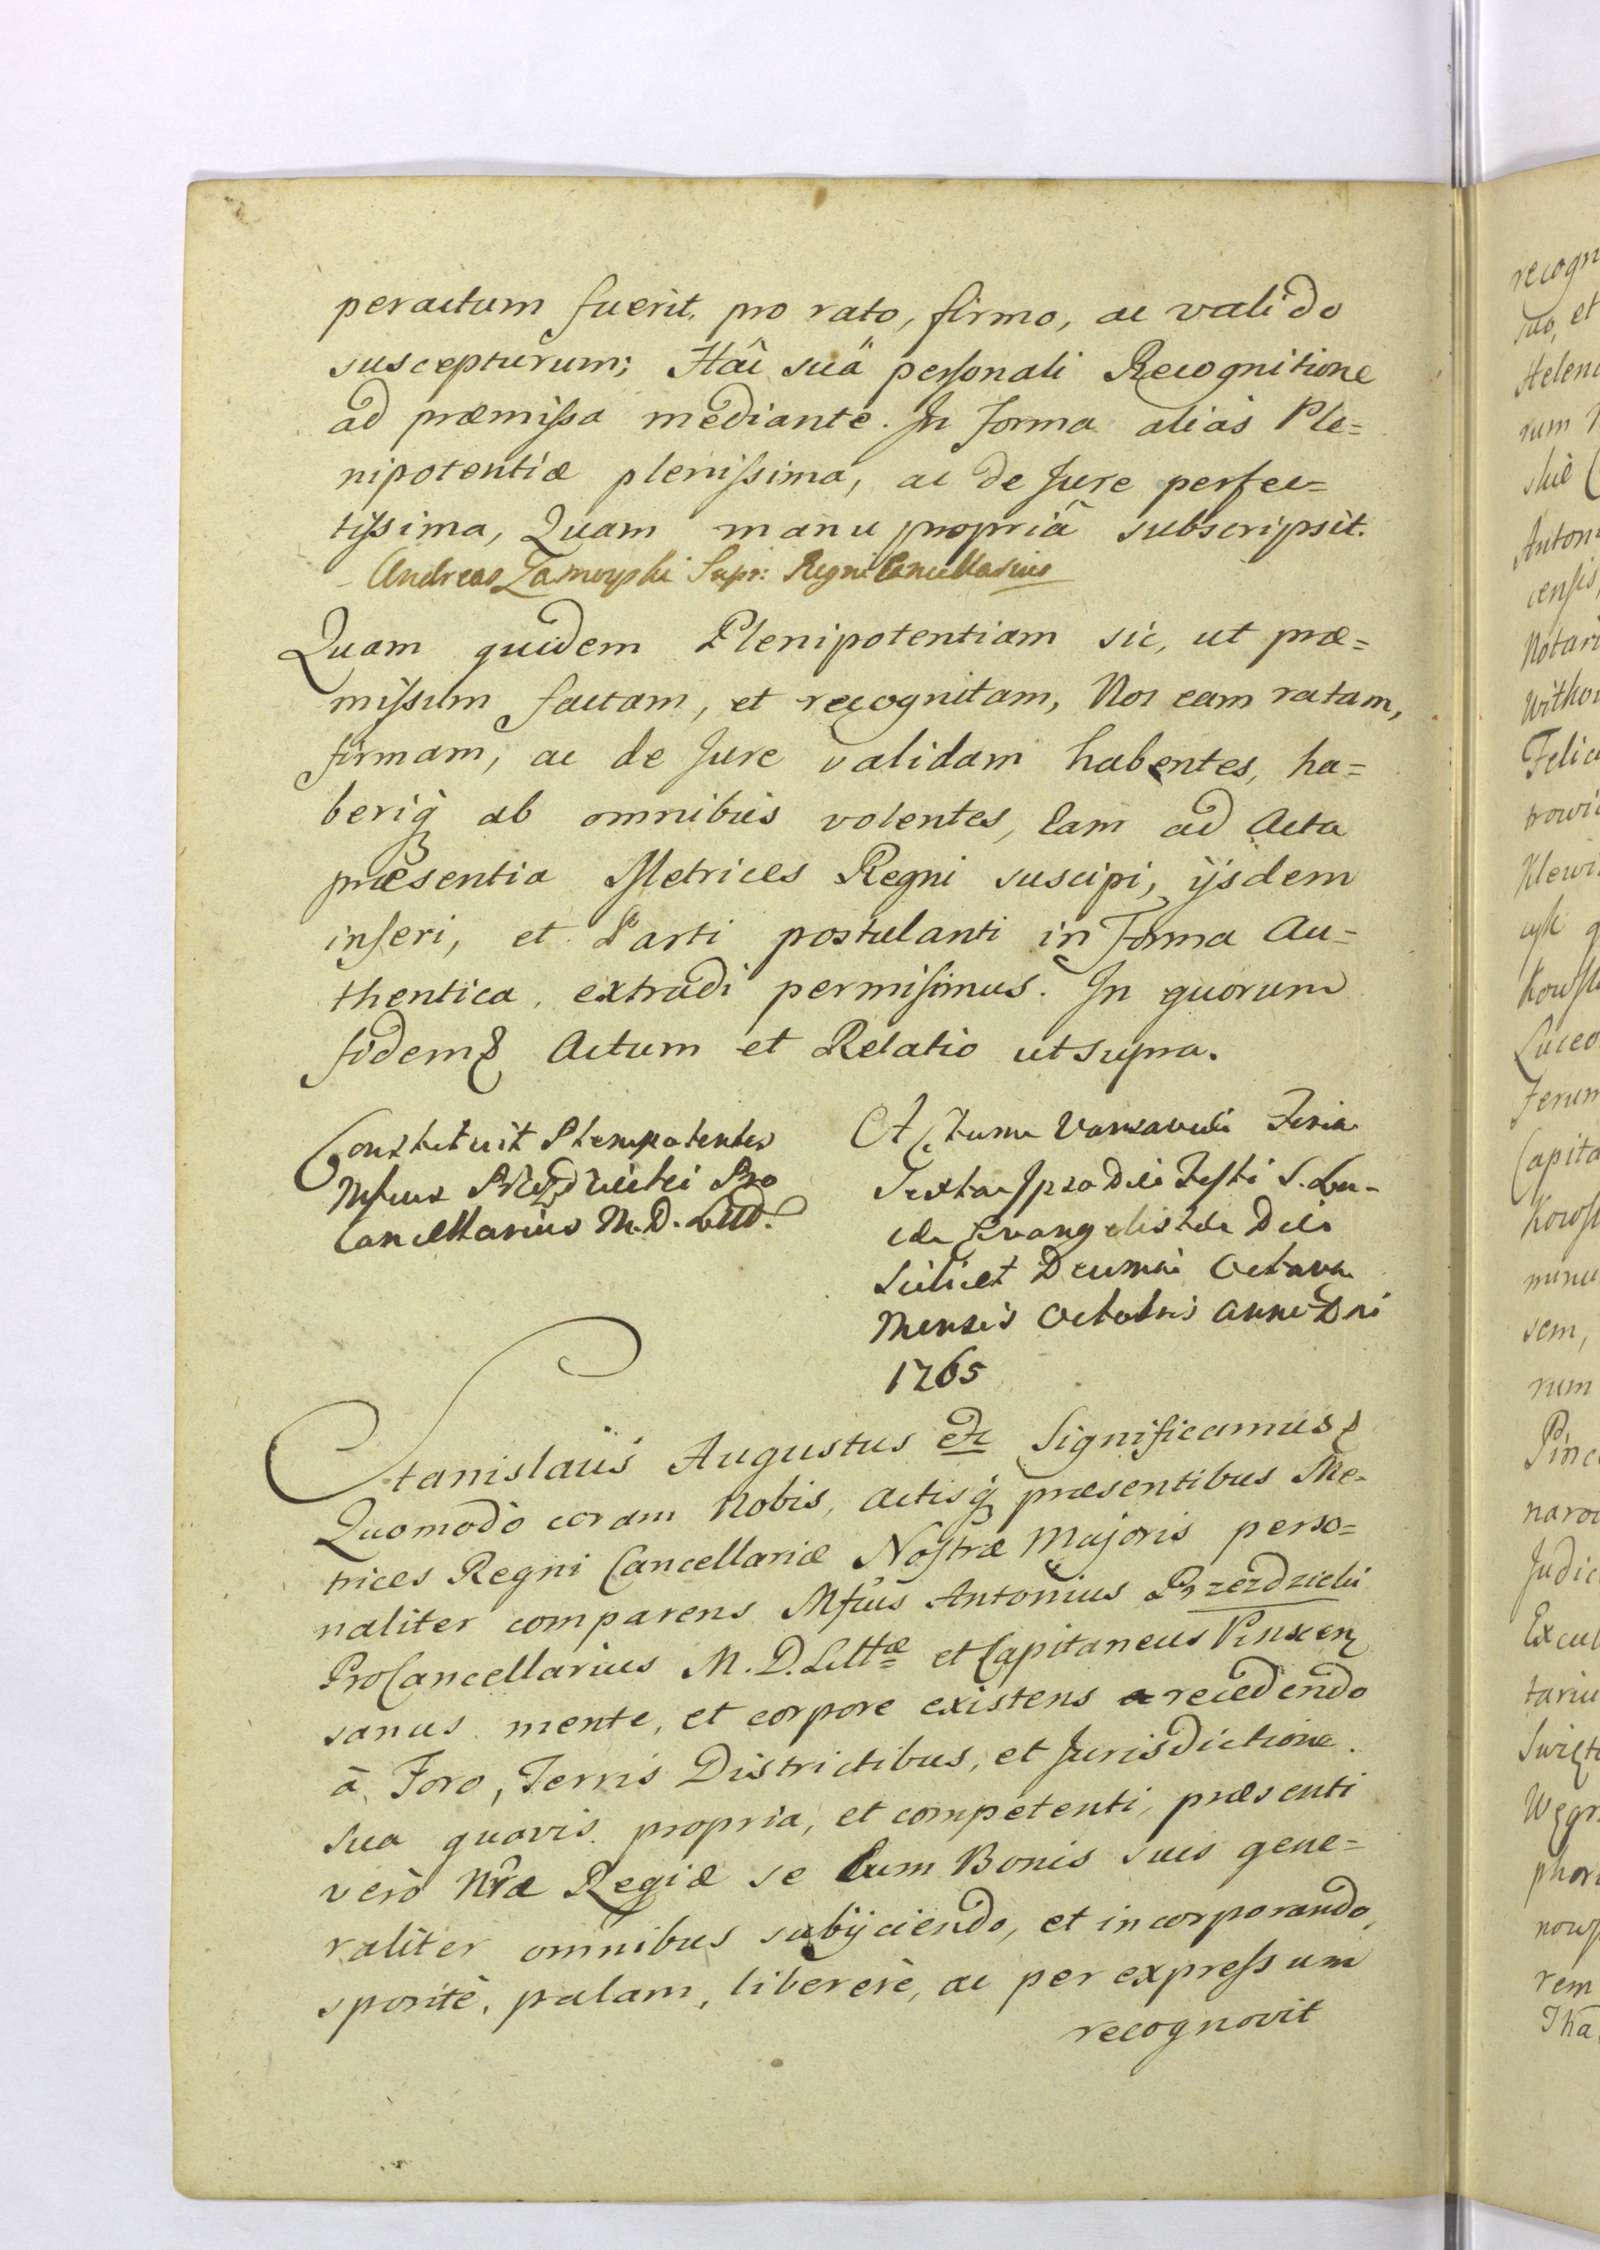 peractum fuerit, pro rato, firmo, ac valido
suscepturum; Hâc suâ personali Recognitione
ad præmissa mediante. In Forma alias Ple=
nipotentiæ plenissima, ac de Jure perfec=
tissima, Quam manu propriâ subscripsit.
Andreas Zamoyski Supr: Regni Cancellarius
Quam quidem Plenipotentiam sic, ut præ=
missum factam, et recognitam, Nos eam ratam,
firmam, ac de Jure validam habentes, ha=
beriq́ ab omnibus volentes, Eam ad Acta
præsentia Metrices Regni suscipi, ijsdem
inseri, et Parti postulanti in Forma Au=
thentica, extradi permisimus. In quorum
fidem Actum et Relatio ut supra.
Constituit Plenipotentes
Mfcus Przezdziecki Pro
Cancellarius M. D. Litt.
Actum Varsaviæ Feria
Sexta Ipso Die Festi S. Lu-
cæ Evangelistæ Die
Scilicet Decima Octava
Mensis Octobris Anno Dni
1765
Stanislaus Augustus etc Significamus
Quomodò coram Nobis, Actisq́ præsentibus Me=
trices Regni Cancellariæ Nostræ Majoris perso=
naliter comparens Mfcus Antonius Przezdziecki
ProCancellarius M. D. Littæ et Capitaneus Pinscen
sanus mente, et corpore existens recedendo
à Foro, Terris Districtibus, et Jurisdictione
sua quavis propria, et competenti, præsenti
verò Nræ Regiæ se Cum Bonis suis gene=
raliter omnibus subijciendo, et incorporando,
spontè, palam, liberè, ac per expressum
recognovit
recogn
suo, et
Helen
rum
Antoni
censis,
Notari
Felic
Luceo
Capita
sem,
rum
Pinc
naro
Judic
tariu
rem